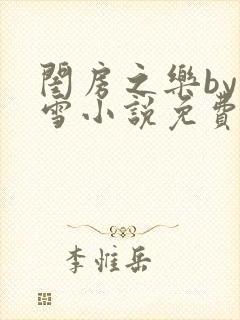 閨房之樂by
雪小說免費
李惟岳